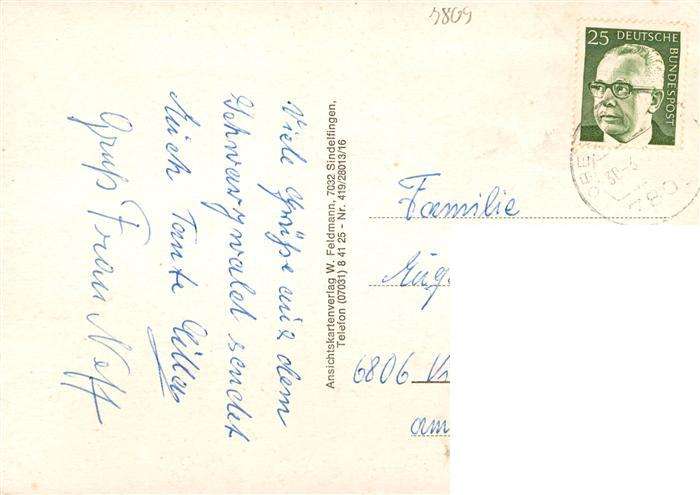 Viele Grüße aus dem
Schwarzwald sendet
Euch Tante Lilla
Gruß Frau Neff
Ansichtskartenverlag W. Feldmann, 7032 Sindelfingen,
Telefon (07031) 8 41 25 - Nr. 419/28013/16
5809
25 DEUTSCHE
BUNDESPOST
780
Familie
Eug
6806
am